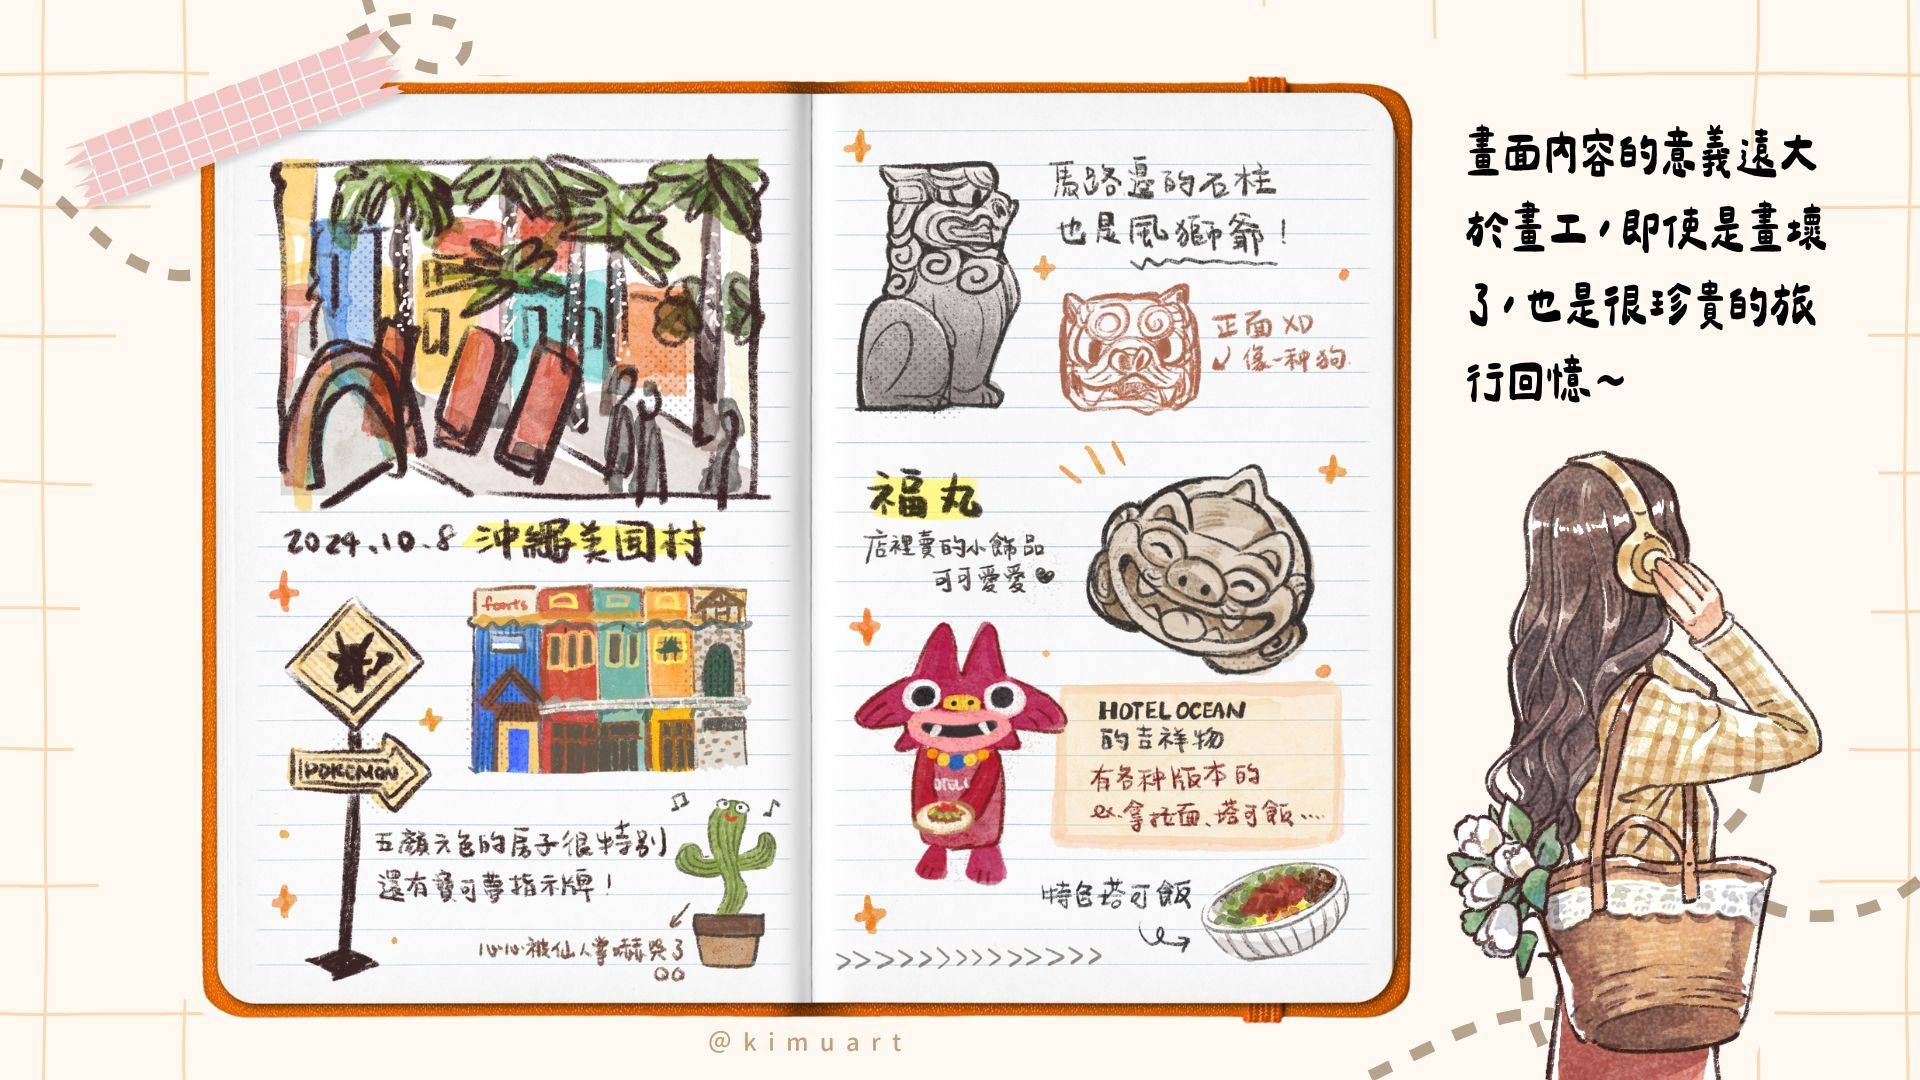 2024.10.8 沖繩美国村
foorts
POKEMON
五顏六色的房子很特別
還有寶可夢指示牌！
心心被仙人掌嚇哭了
QQ
馬路邊的石柱
也是風獅爺！
正面XD
像一种狗
福丸
店裡賣的小飾品
可可愛愛
HOTEL OCEAN
的吉祥物
有各种版本的
ex.拿拉面、塔可飯....
OTEL
特色塔可飯
畫面內容的意義遠大
於畫工，即使是畫壞
了，也是很珍貴的旅
行回憶~
@kimuart